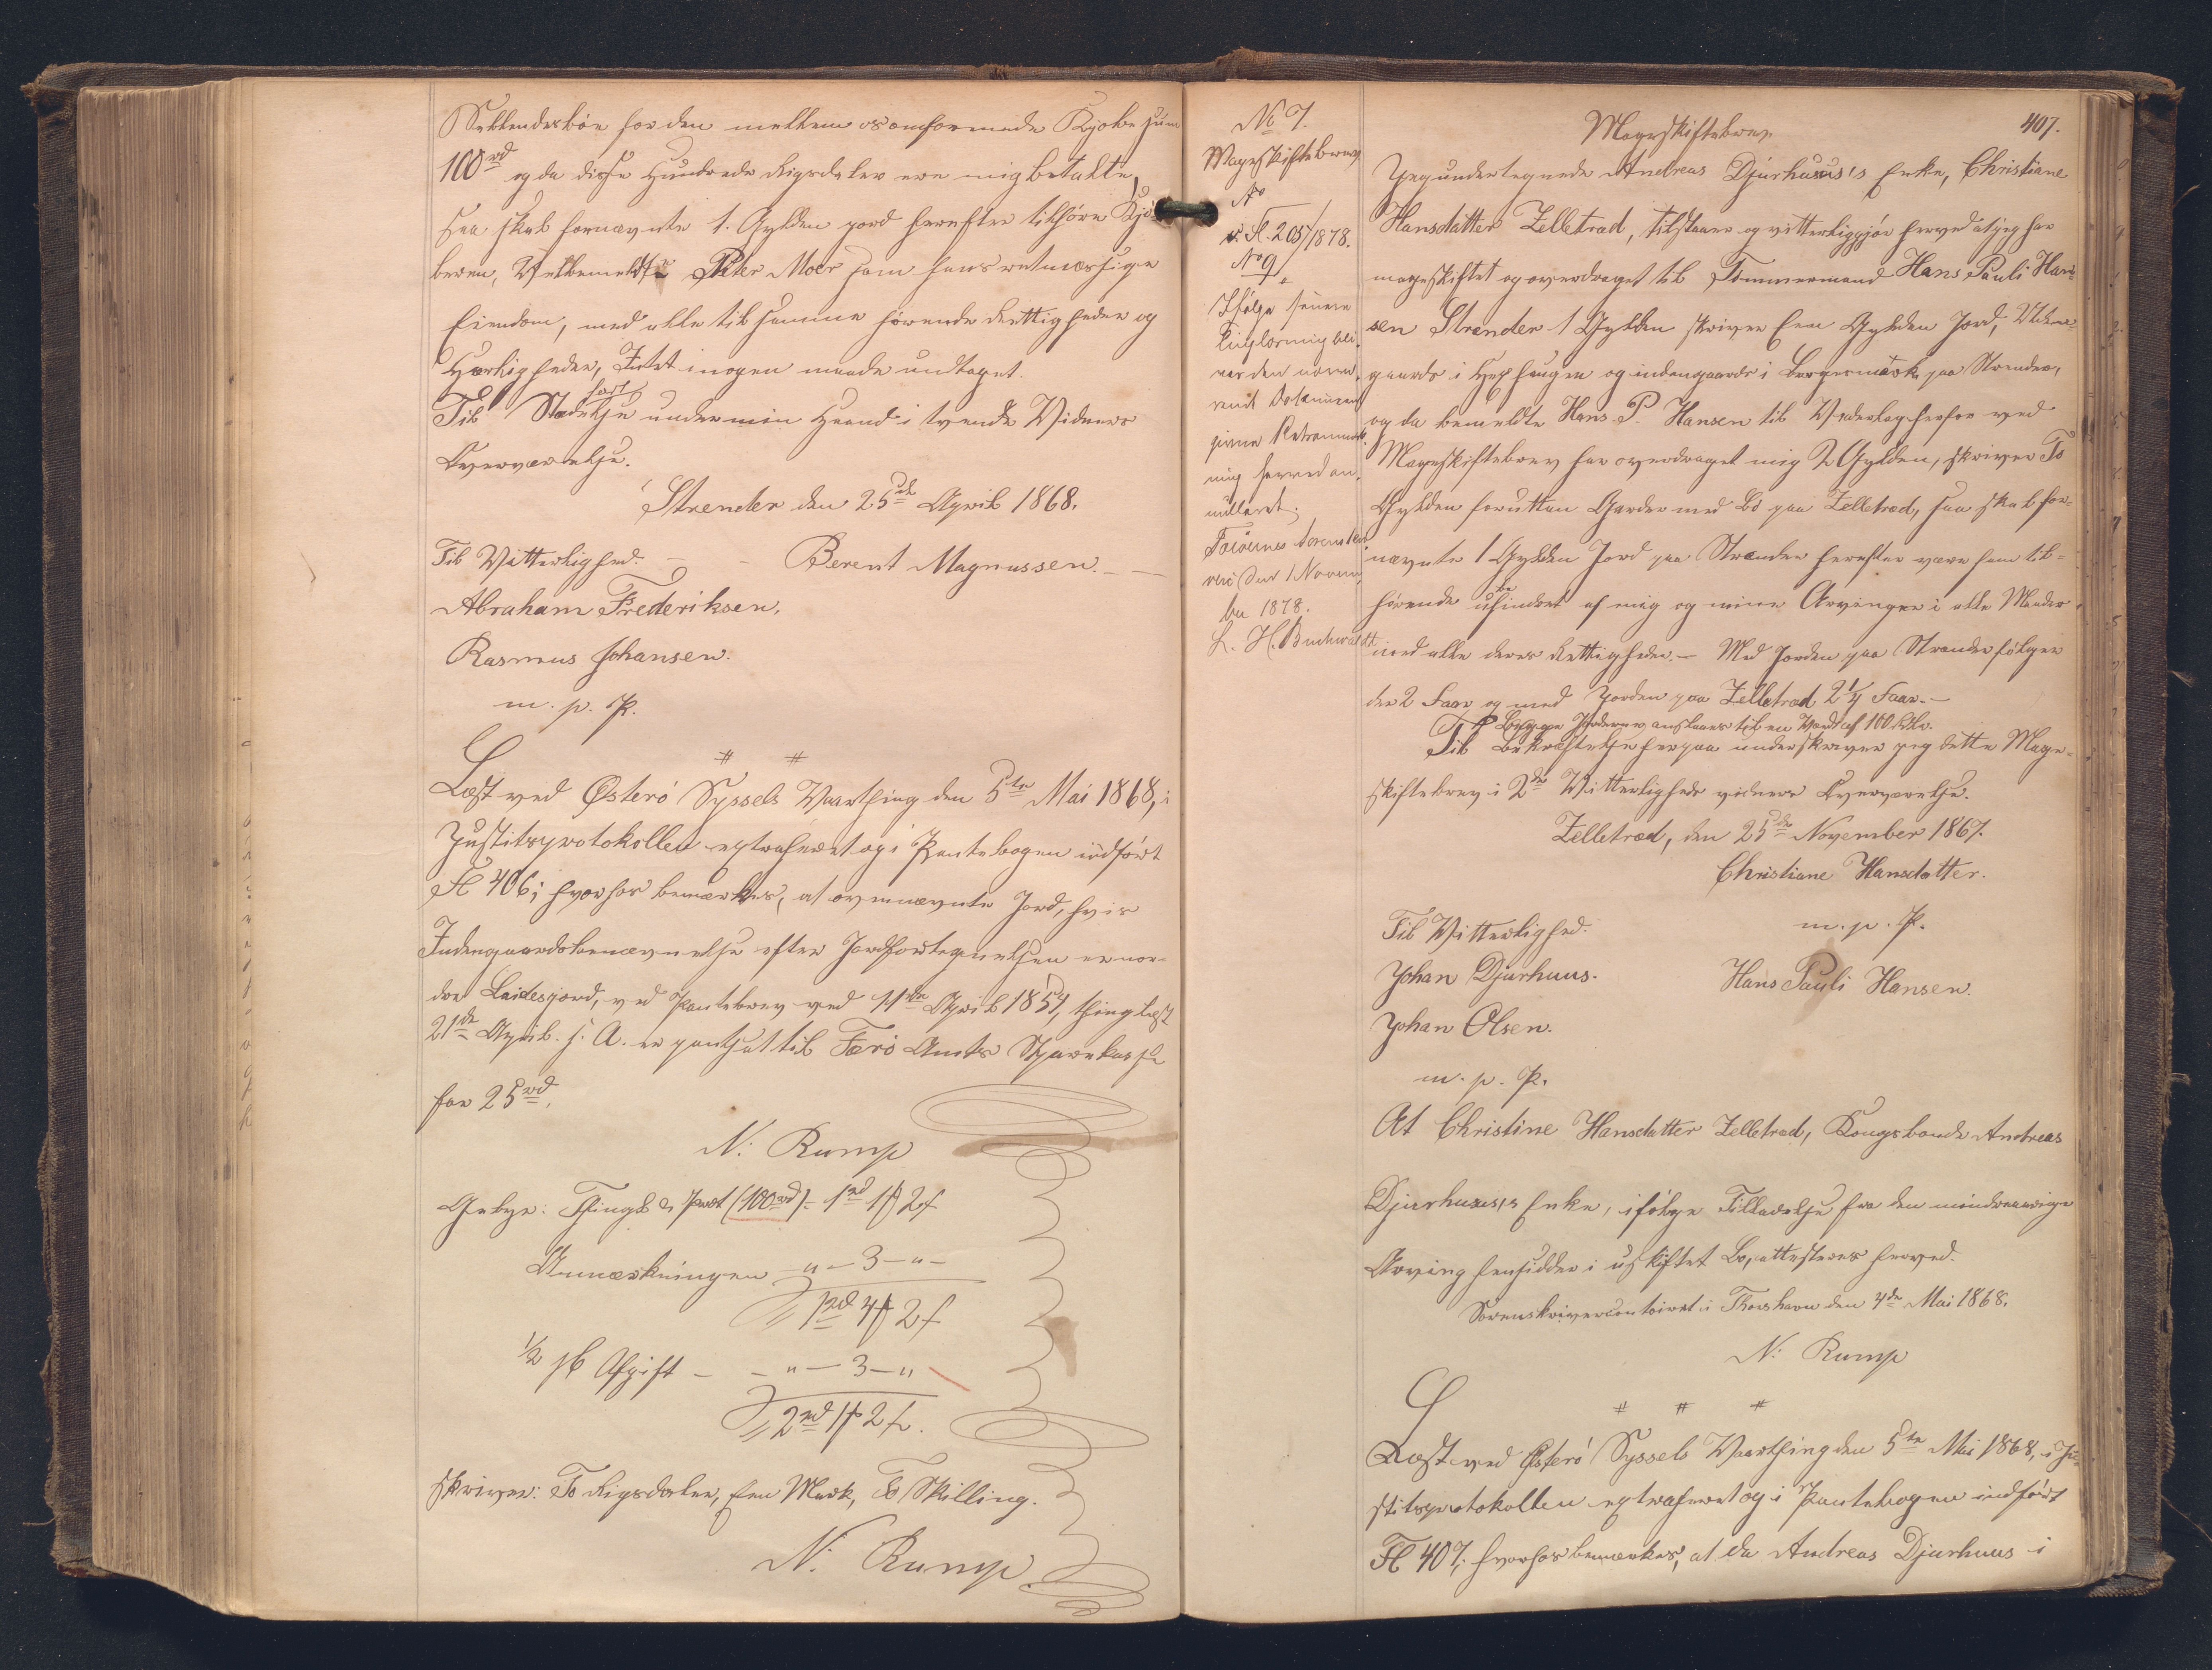 Sellendesbøn for den mellem os omforenede Kjøbesum
100rd og da disse Hundrede Rigsdaler ere mig betalte,
saa skal fornævnte 1. Gylden Jord herefter tilhøre Kjø-
beren, Velbemeldte Peter Moer som hans retmæssige
Eiendom, med alle til samme hørende Rettigheder og
Herligheder, Intet i nogen maade undtaget.
Til Stadfæstelse under min Haand i tvende Vidners
Overværelse.
Strender den 25de April 1868.
Til Vitterlighed. – – Berent Magnussen. –
Abraham Frederiksen.
Rasmus Johansen.
m. p. P.
Læst ved Østerø Syssels Vaarthing den 5te Mai 1868, i
Justitsprotokollen extraheret og i Pantebogen indført
Fl 406; hvorhos bemærkes, at ovennævnte Jord, hvis
Indengaardsbenævnelse efter Jordfortegnelsen er nor-
dre Leidesjord, ved Pantebrev ved 11te April 1859, thinglæst
21de April s. A. er pantsat til Færø Amts Sparekasse
for 25rd.
N: Rump
Gebyr: Thingl. & Prot (100rd) – 1rd 1 2
Anmærkningen – " – 3 – " –
1rd 4 2
1/2 pC Afgift – – " – 3 – "
2rd 1 2
skriver: To Rigsdaler, Een Mark, To Skilling.
N: Rump
No 7.
Mageskiftebrev
No
v. Fl. 205/1878.
No 9
Ifølge senere
Tinglæsning bli-
ver den nærvæ-
rende Dokument
givne Retsanmærk-
ning herved an-
nulleret.
Færøernes Sorenskri-
veri den 1 Novem-
ber 1878.
L. H. Buchwaldt
407.
Mageskiftebrev
Jeg undertegnede Andreas Djurhuus's Enke, Christiane
Hansdatter Zelletræd, tilstaaer og vitterliggjør herved at jeg har
mageskiftet og overdraget til Tømmermand Hans Pauli Han-
sen Strender 1 Gylden skriver Een Gylden Jord, Uden-
gaards i Heyhaugen og indengaards i Bergersmørk paa Strender,
og da bemeldte Hans P. Hansen til Vederlag herfor ved
Mageskiftebrev har overdraget mig 2 Gylden, skriver To
Gylden foruden Gærder med Bø paa Zelletræd, saa skal for-
nævnte 1 Gylden Jord paa Strender herefter være ham til-
hørende ubehindret af mig og mine Arvinger i alle Maader
med alle deres Rettigheder. – Med Jorden paa Strender følger
der 2 Faar og med Jorden paa Zelletræd 2 1/4 Faar. –
Begge Jorderne ansættes til en Værdi af 100 Rdlr.
Til Bekræftelse herpaa underskriver jeg dette Mage-
skiftebrev i 2de Vitterligheds vidners Overværelse.
Zelletræd, den 25de November 1867.
Christiane Hansdatter.
Til Vitterlighed. m. p. P.
Johan Djurhuus. Hans Pauli Hansen.
Johan Olsen.
m. p. P.
At Christine Hansdatter Zelletræd, Kongsbonde Andreas
Djurhuus's Enke, ifølge Tilladelse fra den mindreaarige
Arving hensidder i uskiftet Bo, attesteres herved.
Sorenskrivercontoiret i Thorshavn den 4de Mai 1868.
N: Rump
Læst ved Østerø Syssels Vaarthing den 5te Mai 1868, i Ju-
stitsprotokollen extraheret og i Pantebogen indført
Fl 407; hvorhos bemærkes, at da Andreas Djurhuus i